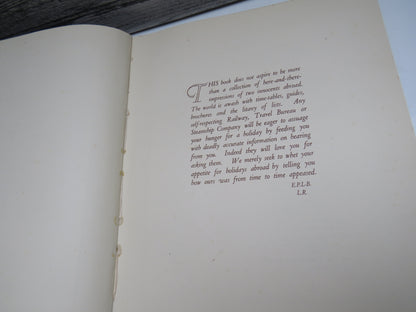 THIS book does not aspire to be more
than a collection of here-and-there-
impressions of two innocents abroad.
The world is awash with time-tables, guides,
brochures and the litany of lists. Any
self-respecting Railway, Travel Bureau or
Steamship Company will be eager to assuage
your hunger for a holiday by feeding you
with deadly accurate information on hearing
from you. Indeed they will love you for
asking them. We merely seek to whet your
appetite for holidays abroad by telling you
how ours was from time to time appeased.
E.P.L.B.
L.R.